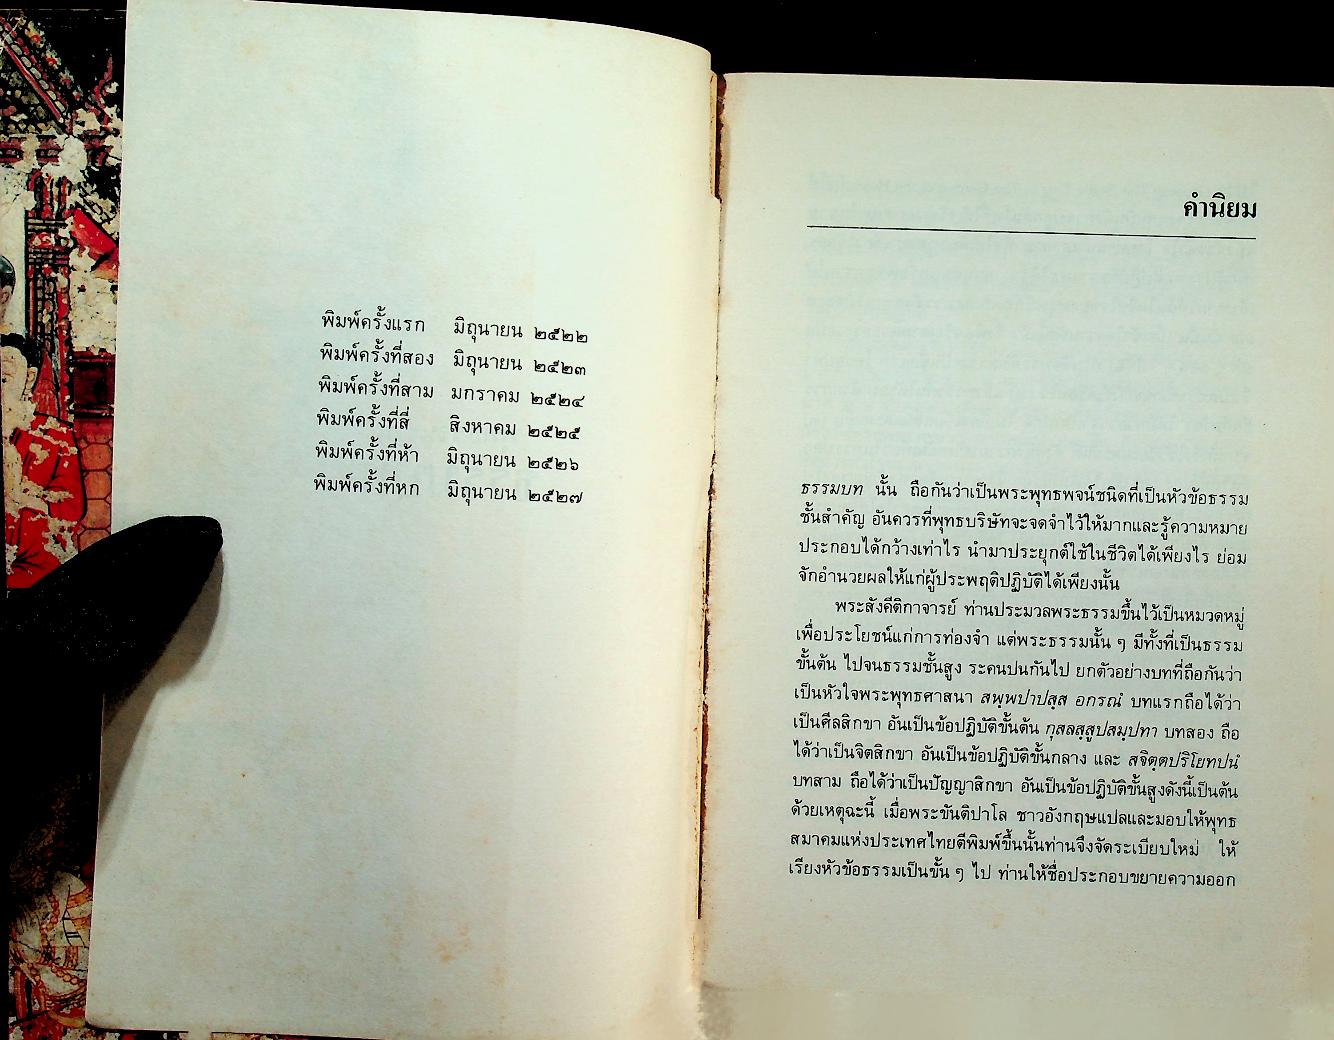 พิมพ์ครั้งแรก มิถุนายน ๒๕๒๒
พิมพ์ครั้งที่สอง มิถุนายน ๒๕๒๓
พิมพ์ครั้งที่สาม มกราคม ๒๕๒๔
พิมพ์ครั้งที่สี่ สิงหาคม ๒๕๒๕
พิมพ์ครั้งที่ห้า มิถุนายน ๒๕๒๖
พิมพ์ครั้งที่หก มิถุนายน ๒๕๒๗
คำนิยม
ธรรมบท นั้น ถือกันว่าเป็นพระพุทธพจน์ชนิดที่เป็นหัวข้อธรรม
ชั้นสำคัญ อันควรที่พุทธบริษัทจะจดจำไว้ให้มากและรู้ความหมาย
ประกอบได้กว้างเท่าไร นำมาประยุกต์ใช้ในชีวิตได้เพียงไร ย่อม
จักอำนวยผลให้แก่ผู้ประพฤติปฏิบัติได้เพียงนั้น
พระสังคีติกาจารย์ ท่านประมวลพระธรรมขึ้นไว้เป็นหมวดหมู่
เพื่อประโยชน์แก่การท่องจำ แต่พระธรรมนั้น ๆ มีทั้งที่เป็นธรรม
ขั้นต้น ไปจนธรรมชั้นสูง ระคนปนกันไป ยกตัวอย่างบทที่ถือกันว่า
เป็นหัวใจพระพุทธศาสนา สพฺพปาปสฺส อกรณํ บทแรกถือได้ว่า
เป็นศีลสิกขา อันเป็นข้อปฏิบัติขั้นต้น กุสลสฺสูปสมฺปทา บทสอง ถือ
ได้ว่าเป็นจิตสิกขา อันเป็นข้อปฏิบัติขั้นกลาง และ สจิตฺตปริโยทปนํ
บทสาม ถือได้ว่าเป็นปัญญาสิกขา อันเป็นข้อปฏิบัติขั้นสูงดังนี้เป็นต้น
ด้วยเหตุฉะนี้ เมื่อพระขันติปาโล ชาวอังกฤษแปลและมอบให้พุทธ
สมาคมแห่งประเทศไทยตีพิมพ์ขึ้นนั้นท่านจึงจัดระเบียบใหม่ ให้
เรียงหัวข้อธรรมเป็นขั้น ๆ ไป ท่านให้ชื่อประกอบขยายความออก